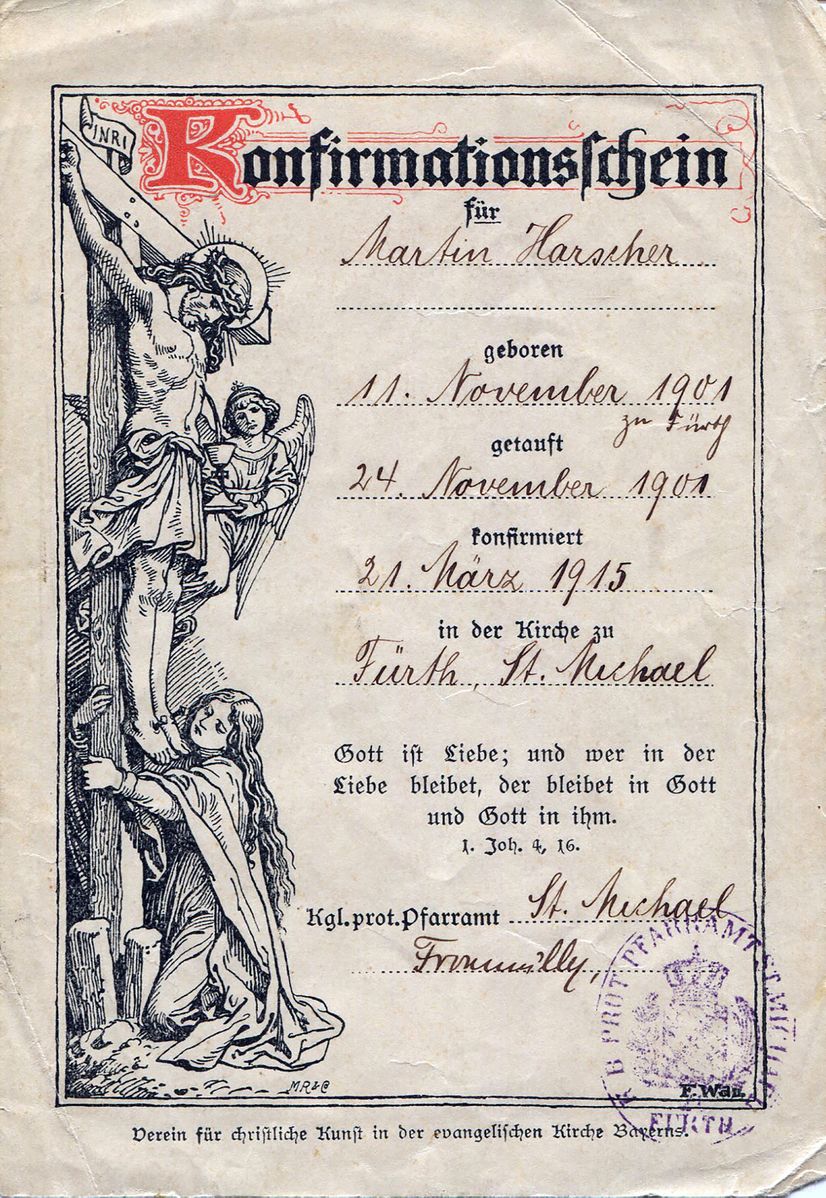 INRI
Konfirmationsschein
für
Martin Harscher
geboren
11. November 1901
zu Fürth
getauft
24. November 1901
konfirmiert
21. März 1915
in der Kirche zu
Fürth, St. Michael
Gott ist Liebe; und wer in der
Liebe bleibet, der bleibet in Gott
und Gott in ihm.
1. Joh. 4, 16.
Kgl. prot. Pfarramt St. Michael
Fronmüller,
K. B. PROT. PFARRAMT ST. MICHAEL
FÜRTH
M R & C
F. Wan
Verein für christliche Kunst in der evangelischen Kirche Bayerns.